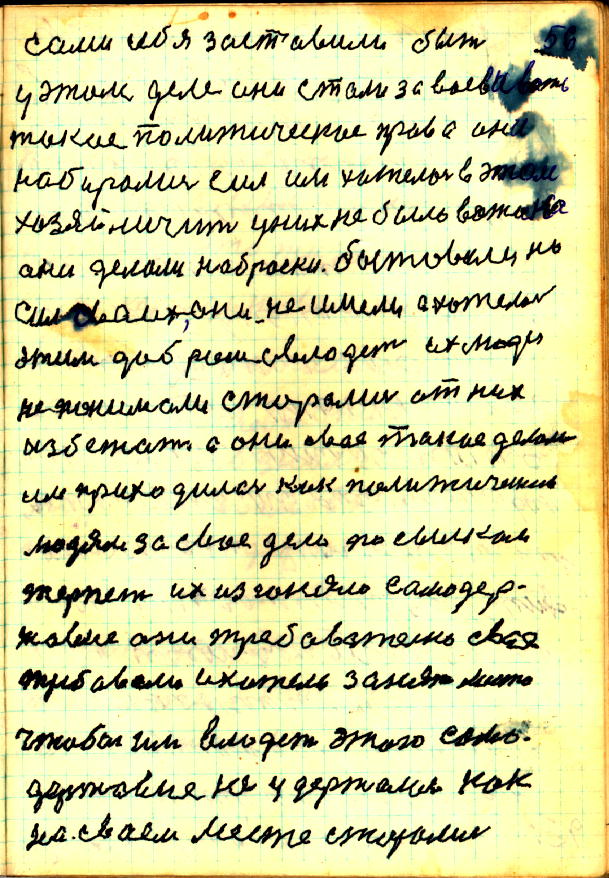 56
сами себя заставили быт
у этом деле они стали завоевыват
такое политическое права они
набирались сил им хотелося в этом
хозяйничит у них не было вожака
они делали наброски. бастовали но
сил своих, они не имели а хотелося
этим добром овлодет их люди
не понимали старались от них
избежат а они свое такое делали
им приходилося как политическим
людям за свое дело по ссылкам
терпет их изгоняло самодер-
жавие они требователно свое
требовали и хотель занят место
чтобы им владет этого само-
державие не удержалося как
на своем месте старались